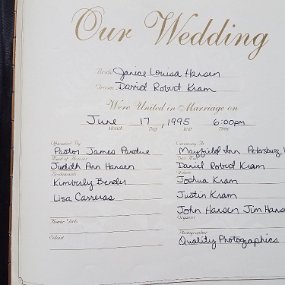 Our Wedding
Bride Janice Louisa Hansen
Groom David Robert Kram
Were United in Marriage on
June 17, 1995 6:00pm
Month Day Year Time
Officiated By
Pastor James Perdue
Maid of Honor
Judith Ann Hansen
Bridesmaids
Kimberly Bender
Lisa Carreras
Flower Girls
Soloist
Ceremony At
Mayfield Inn Petersburg
Best Man
Daniel Robert Kram
Ushers
Joshua Kram
Justin Kram
John Hansen Jim Hans
Organist
Photographer
Quality Photographics